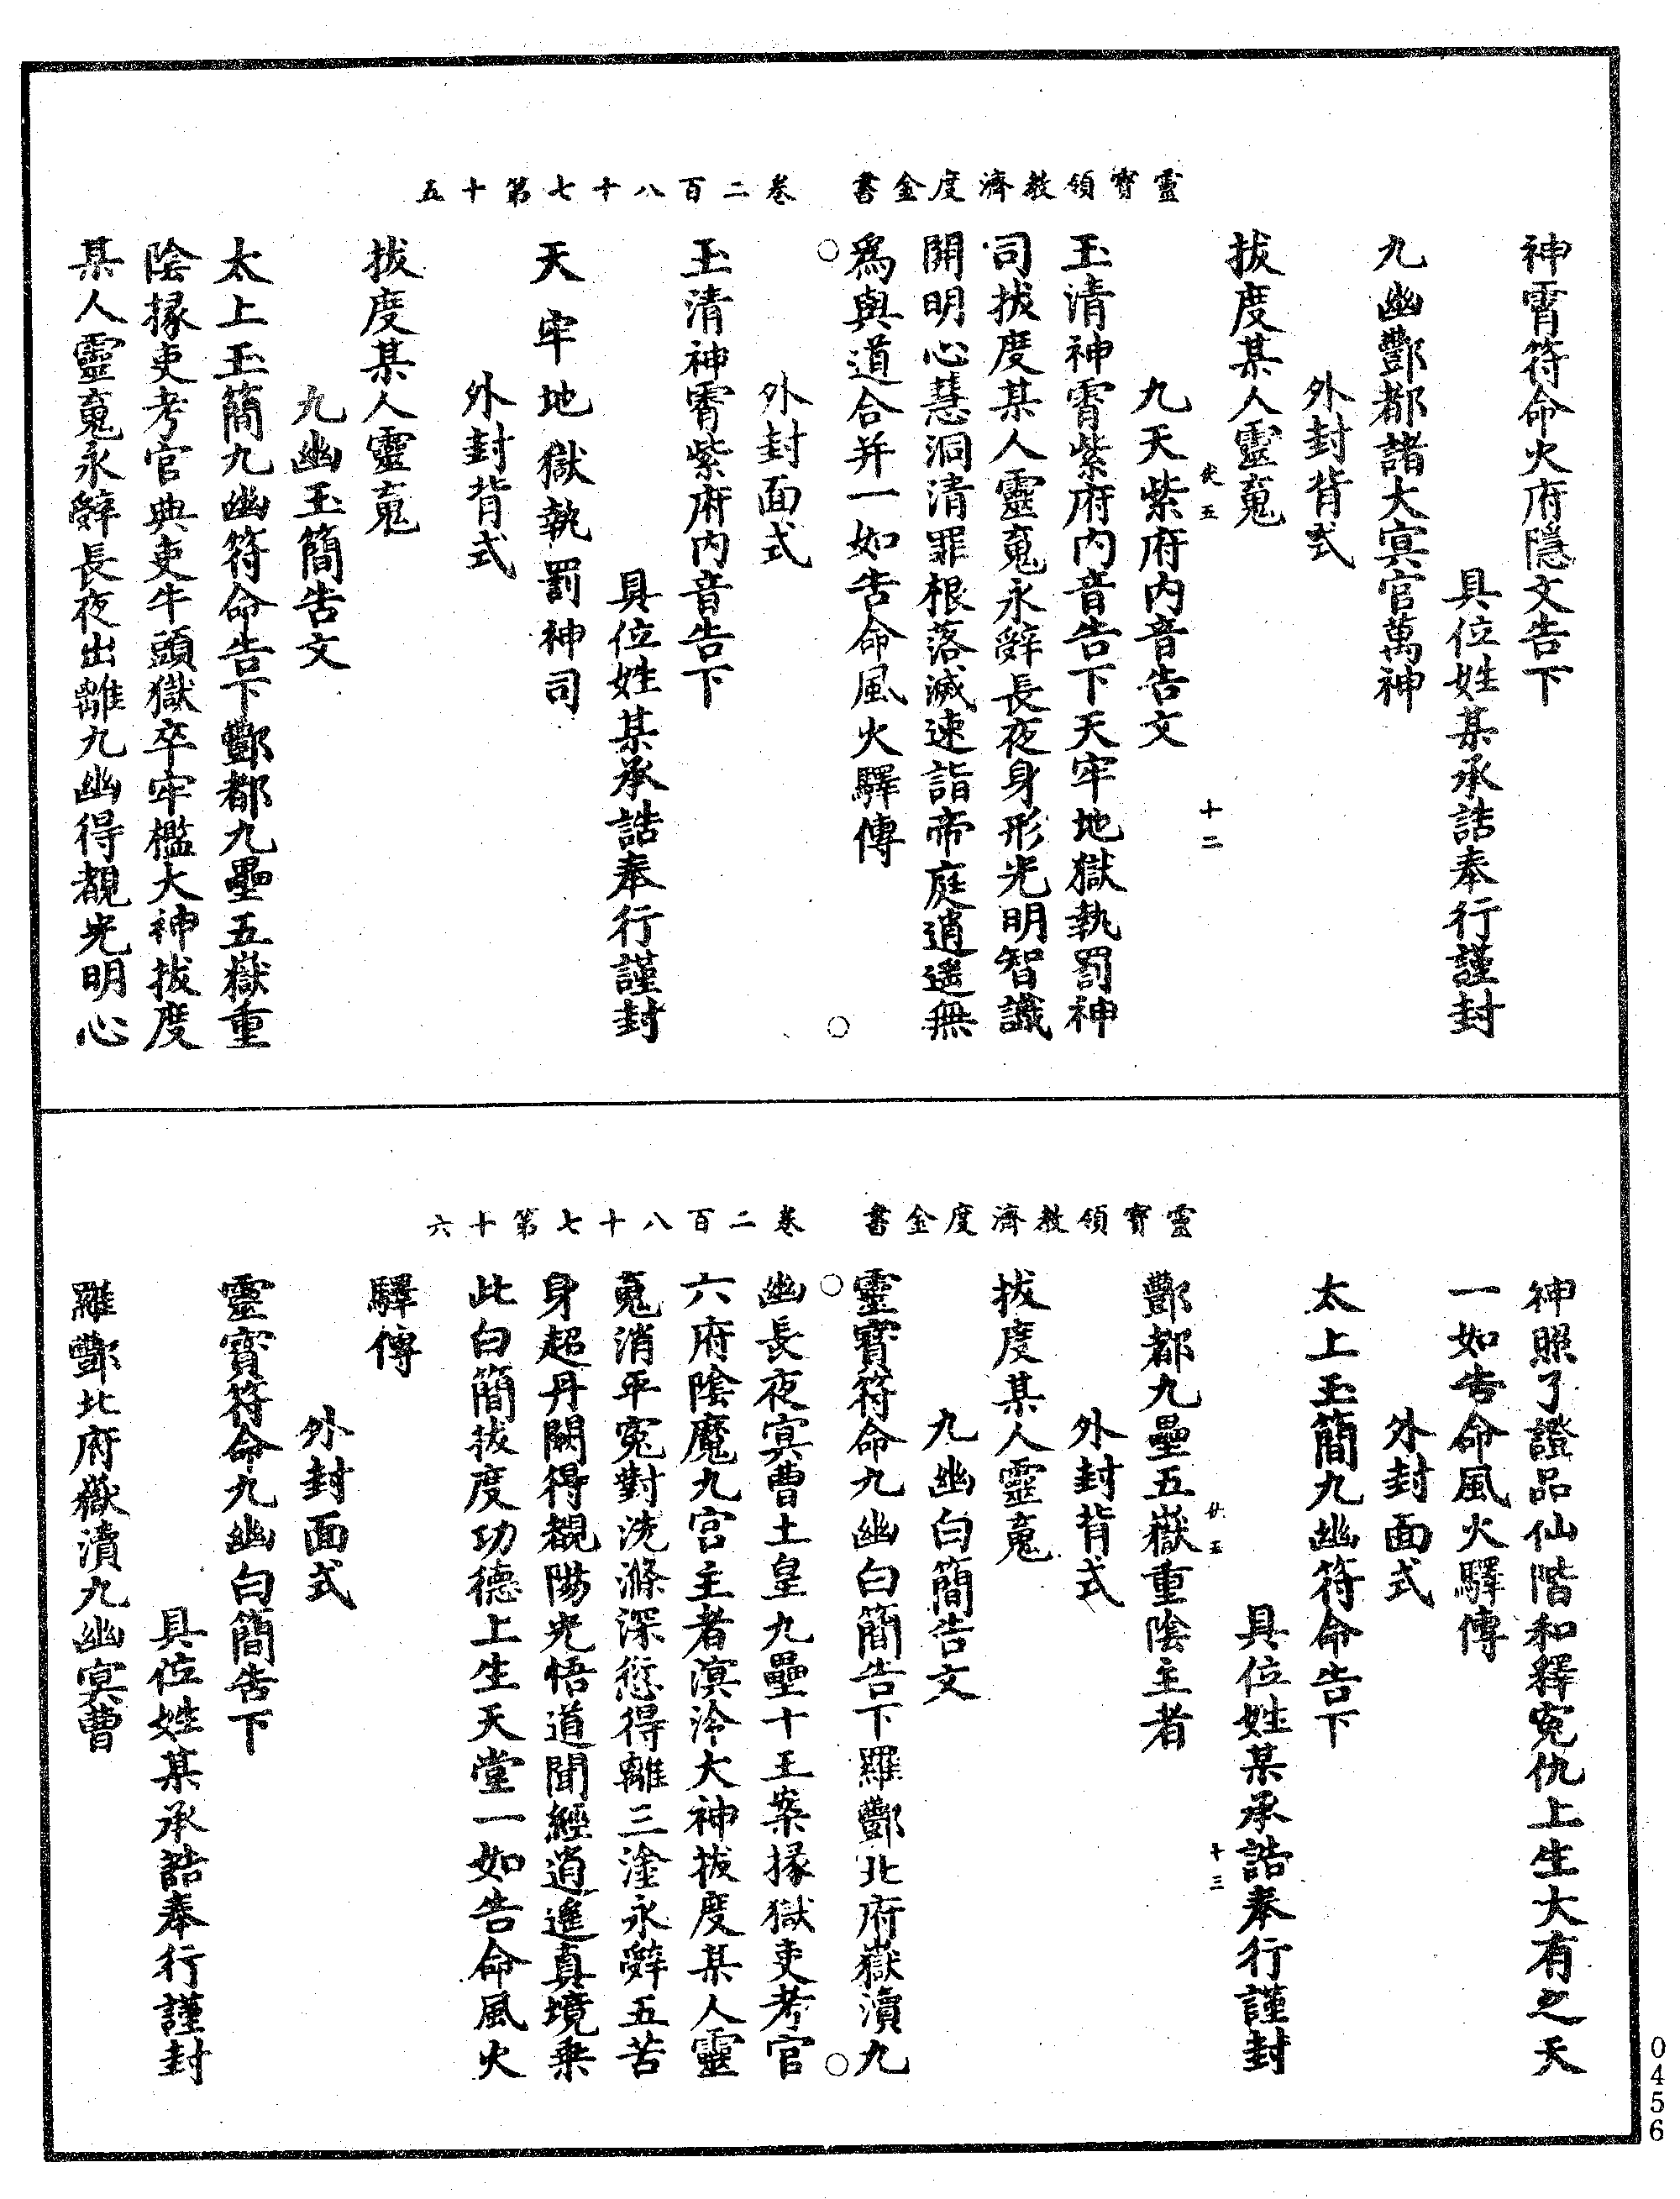 靈寶領教濟度金書 卷二百八十七第十五
神霄符命火府隱文告下
具位姓某承誥奉行謹封
九幽酆都諸大冥官萬神
外封背式
拔度某人靈䰟
五 十二
九天紫府內音告文
玉清神霄紫府內音告下天牢地獄執罰神
司拔度某人靈䰟永辭長夜身形光明智識
開明心慧洞清罪根落滅速詣帝庭逍遥無
爲與道合并一如告命風火驛傳
外封面式
玉清神霄紫府內音告下
具位姓某承誥奉行謹封
天牢地獄執罰神司
外封背式
拔度某人靈䰟
九幽玉簡告文
太上玉簡九幽符命告下酆都九壘五嶽重
陰掾吏考官典吏牛頭獄卒牢檻大神拔度
某人靈䰟永辭長夜出離九幽得覩光明心
靈寶領教濟度金書 卷二百八十七第十六
神照了證品仙階和釋寃仇上生大有之天
一如告命風火驛傳
外封面式
太上玉簡九幽符命告下
具位姓某承誥奉行謹封
五 十三
酆都九壘五嶽重陰主者
外封背式
拔度某人靈䰟
九幽白簡告文
靈寶符命九幽白簡告下羅酆北府嶽瀆九
幽長夜冥曹土皇九壘十王案掾獄吏考官
六府陰魔九宮主者溟泠大神拔度某人靈
䰟消平寃對洗滌深愆得離三塗永辭五苦
身超丹闕得覩陽光悟道聞經逍遥真境乗
此白簡拔度功德上生天堂一如告命風火
驛傳
外封面式
靈寶符命九幽白簡告下
具位姓某承誥奉行謹封
羅酆北府嶽瀆九幽冥曹
0456